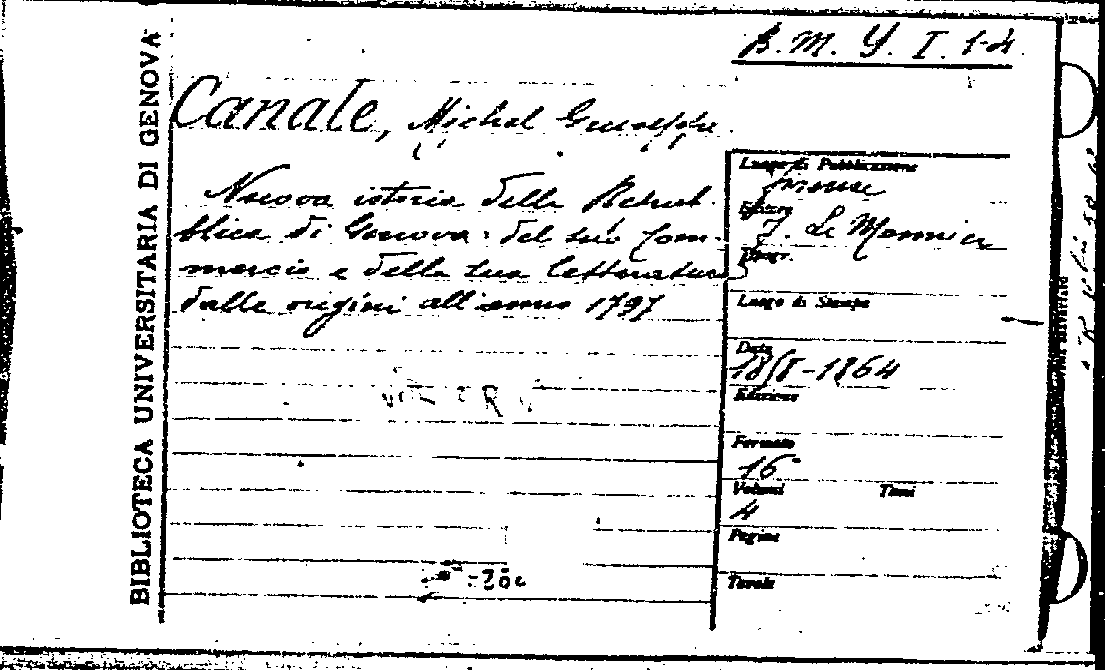 BIBLIOTECA UNIVERSITARIA DI GENOVA
B. M. Y. I. 1-4
Canale, Michel Giuseppe
Nuova istoria della Repub-
blica di Genova: del suo Com-
mercio e della sua letteratura
dalle origini all'anno 1797
Luogo di Pubblicazione
Firenze
Editore
F. Le Monnier
Tipogr.
Luogo di Stampa
Data
1858-1864
Edizione
Formato
16°
Volumi Tomi
4
Pagine
Tavole